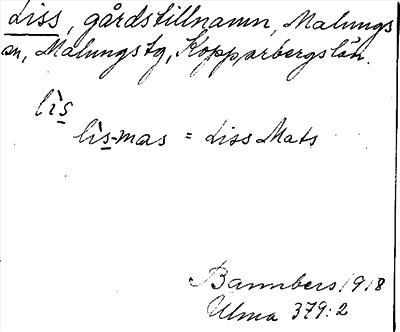 Liss, gårdstillnamn, Malungs
sn, Malungs tg, Kopparbergs län.
lìs
lìs-mas = Liss Mats
Bannbers 1918
Ulma 379:2